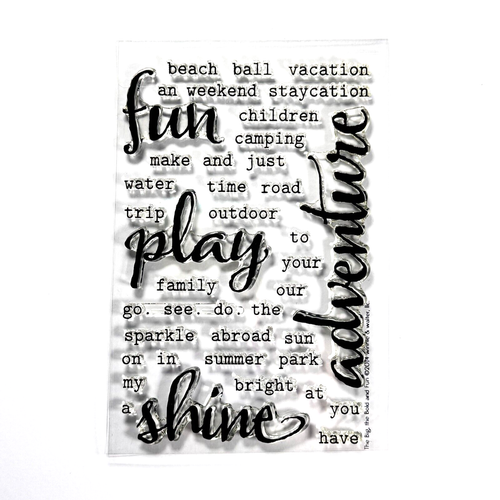 beach ball vacation
an weekend staycation
fun children
camping
make and just
water time road
trip outdoor
play to
your
family our
go. see. do. the
sparkle abroad sun
on in summer park
my bright at
a shine you
have
adventure
The Big, the Bold and Fun ©2014 winnie & walter, llc.